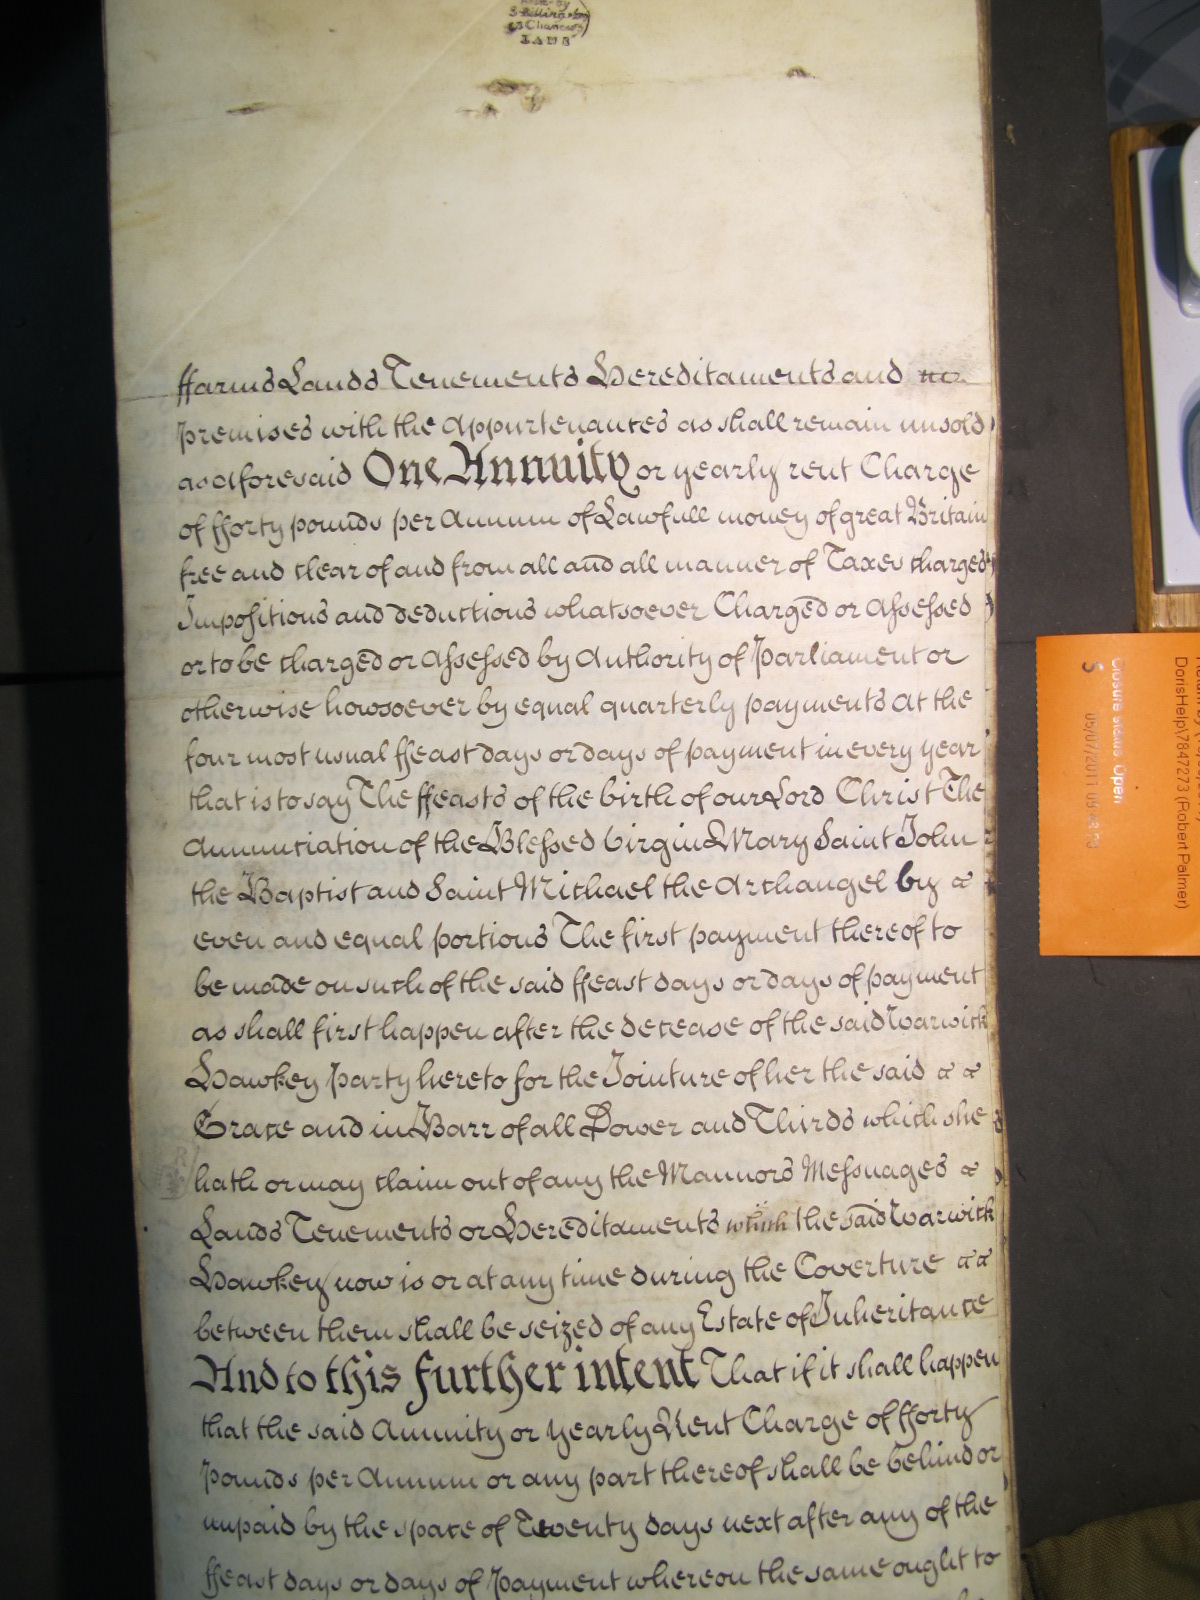 Chancery
LANE
ffarms Lands Tenements Hereditaments and
premises with the Appurtenances as shall remain unsold
as aforesaid One Annuity or yearly rent Charge
of fforty pounds per Annum of Lawfull money of great Britain
free and clear of and from all and all manner of Taxes charges
Impositions and deductions whatsoever Charged or Assessed
or to be charged or Assessed by Authority of Parliament or
otherwise howsoever by equal quarterly payments At the
four most usual ffeast days or days of payment in every year
that is to say The ffeasts of the birth of our Lord Christ The
Annunciation of the Blessed Virgin Mary Saint John
the Baptist and Saint Michael the Archangel by
even and equal portions The first payment thereof to
be made on such of the said ffeast days or days of payment
as shall first happen after the decease of the said Warwick
Hawkey party hereto for the Jointure of her the said
Grace and in Barr of all Dower and Thirds which she
hath or may claim out of any the Mannors Messuages
Lands Tenements or Hereditaments which the said Warwick
Hawkey now is or at any time during the Coverture
between them shall be seized of any Estate of Inheritance
And to this further intent That if it shall happen
that the said Annuity or yearly Rent Charge of fforty
pounds per Annum or any part thereof shall be behind or
unpaid by the space of Twenty days next after any of the
ffeast days or days of payment whereon the same ought to
Closure status Open
S
05/07/2011 09
DorisHelp\7847273 (Robert Palmer)